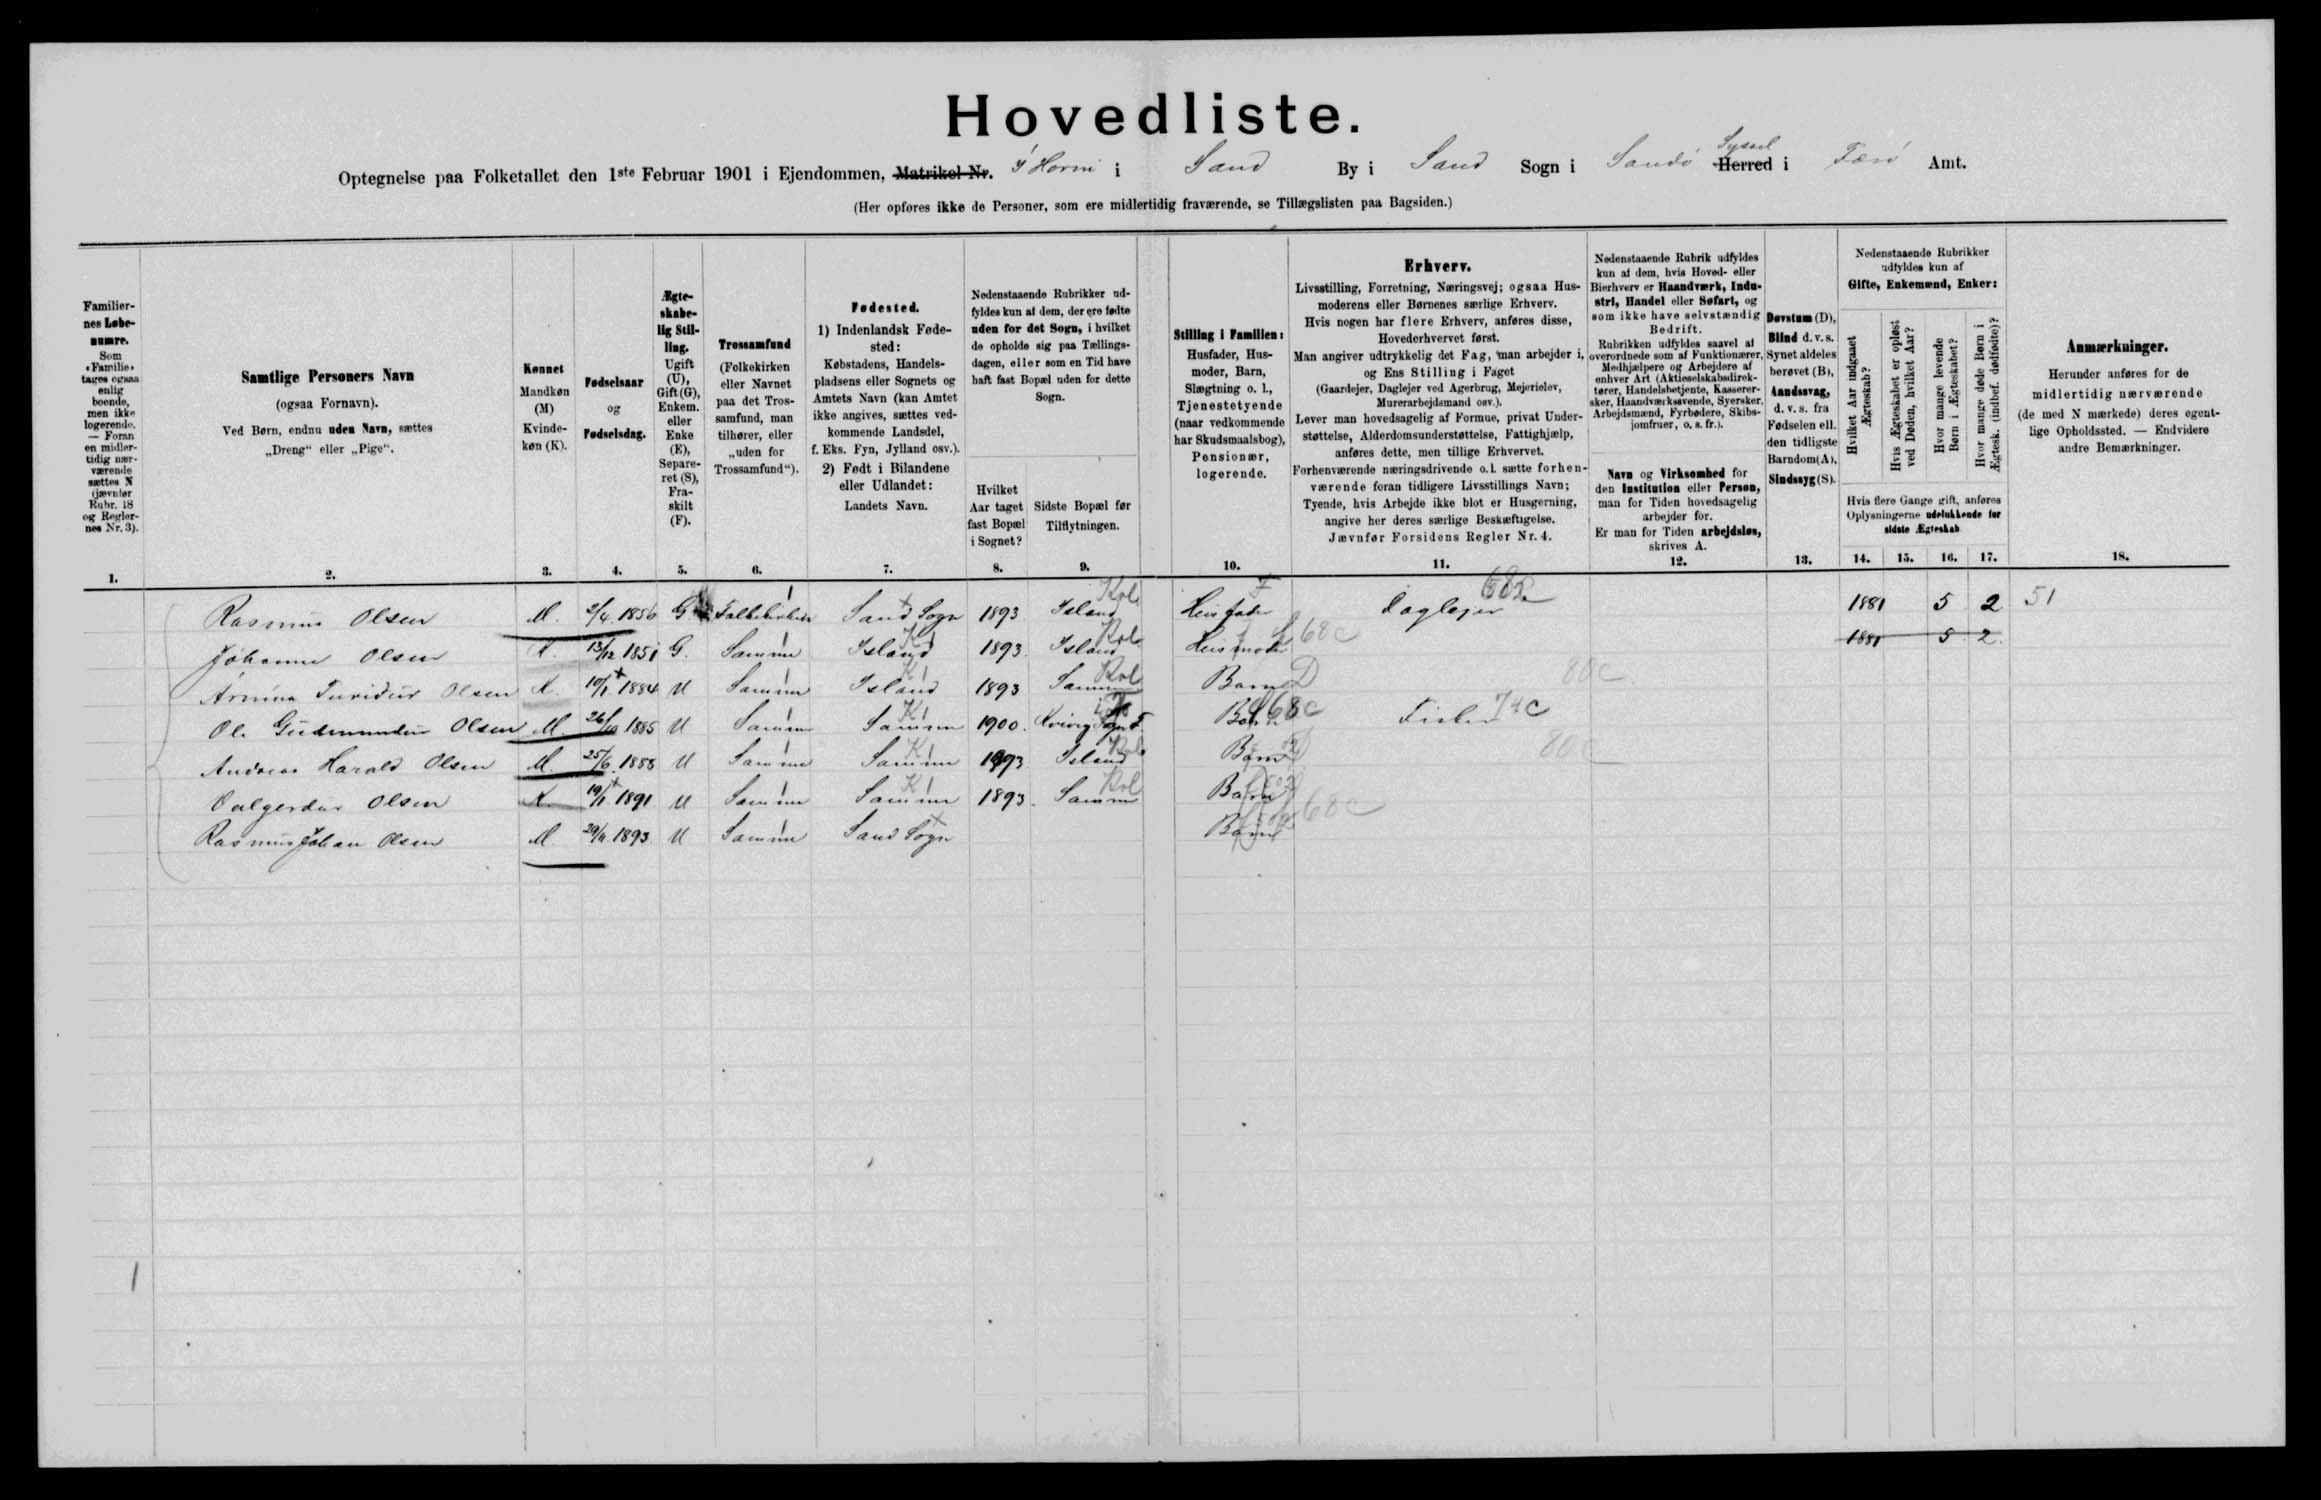 Hovedliste.
Optegnelse paa Folketallet den 1ste Februar 1901 i Ejendommen, Matrikel-Nr. Í Horni i Sand By i Sand Sogn i Sandö Herred Syssel i Færö Amt.
(Her opføres ikke de Personer, som ere midlertidig fraværende, se Tillægslisten paa Bagsiden.)
Familiernes Løbenumre.
Som «Familie» tages ogsaa enlig boende, men ikke logerende. — Foran en midlertidig nærværende sættes N (jævnfør Rubr. 18 og Reglernes Nr. 3).
1.
Samtlige Personers Navn
(ogsaa Fornavn).
Ved Børn, endnu uden Navn, sættes
„Dreng“ eller „Pige“.
2.
Kønnet
Mandkøn (M)
Kvindekøn (K).
3.
Fødselsaar
og
Fødselsdag.
4.
Ægteskabelig Stilling.
Ugift (U), Gift (G), Enkem. eller Enke (E), Separeret (S), Fraskilt (F).
5.
Trossamfund
(Folkekirken eller Navnet paa det Trossamfund, man tilhører, eller „uden for Trossamfund“).
6.
Fødested.
1) Indenlandsk Fødested:
Købstadens, Handelspladsens eller Sognets og Amtets Navn (kan Amtet ikke angives, sættes vedkommende Landsdel, f. Eks. Fyn, Jylland osv.).
2) Født i Bilandene eller Udlandet:
Landets Navn.
7.
Nedenstaaende Rubrikker udfyldes kun af dem, der ere fødte uden for det Sogn, i hvilket de opholde sig paa Tællingsdagen, eller som en Tid have haft fast Bopæl uden for dette Sogn.
Hvilket Aar taget fast Bopæl i Sognet?
8.
Sidste Bopæl før Tilflytningen.
9.
Stilling i Familien:
Husfader, Husmoder, Barn, Slægtning o. l., Tjenestetyende (naar vedkommende har Skudsmaalsbog), Pensionær, logerende.
10.
Erhverv.
Livsstilling, Forretning, Næringsvej; ogsaa Husmoderens eller Børnenes særlige Erhverv.
Hvis nogen har flere Erhverv, anføres disse, Hovederhvervet først.
Man angiver udtrykkelig det Fag, man arbejder i, og Ens Stilling i Faget
(Gaardejer, Daglejer ved Agerbrug, Mejerielev, Murerarbejdsmand osv.).
Lever man hovedsagelig af Formue, privat Understøttelse, Alderdomsunderstøttelse, Fattighjælp, anføres dette, men tillige Erhvervet.
Forhenværende næringsdrivende o. l. sætte forhenværende foran tidligere Livsstillings Navn;
Tyende, hvis Arbejde ikke blot er Husgerning, angive her deres særlige Beskæftigelse.
Jævnfør Forsidens Regler Nr. 4.
11.
Nedenstaaende Rubrik udfyldes kun af dem, hvis Hoved- eller Bierhverv er Haandværk, Industri, Handel eller Søfart, og som ikke have selvstændig Bedrift.
Rubrikken udfyldes saavel af overordnede som af Funktionærer, Medhjælpere og Arbejdere af enhver Art (Aktieselskabsdirektører, Handelsbetjente, Kassererersker, Haandværkssvende, Syersker, Arbejdsmænd, Fyrbødere, Skibsjomfruer, o. s. fr.).
Navn og Virksomhed for den Institution eller Person, man for Tiden hovedsagelig arbejder for.
Er man for Tiden arbejdsløs, skrives A.
12.
Døvstum (D), Blind d. v. s. Synet aldeles berøvet (B), Aandssvag, d. v. s. fra Fødselen ell. den tidligste Barndom (A), Sindssyg (S).
13.
Nedenstaaende Rubrikker udfyldes kun af
Gifte, Enkemænd, Enker:
Hvilket Aar indgaaet Ægteskab?
Hvis Ægteskabet er opløst ved Døden, hvilket Aar?
Hvor mange levende Børn i Ægteskabet?
Hvor mange døde Børn i Ægtesk. (indbef. dødfødte)?
Hvis flere Gange gift, anføres Oplysningerne udelukkende for sidste Ægteskab
14. 15. 16. 17.
Anmærkninger.
Herunder anføres for de midlertidig nærværende (de med N mærkede) deres egentlige Opholdssted. — Endvidere andre Bemærkninger.
18.
Rasmus Olsen M. 2/4 1856 G Folkekirken Sand Sogn 1893 Island Husfader Daglejer 1881 5 2 51
Johanne Olsen K. 13/12 1851 G. Samme Island 1893. Island Husmoder 68c 1881 5 2.
Armina Turidur Olsen K. 10/1 1884 U Samme Island 1893 Samme Barn D 80c
Ole Gudmundur Olsen M. 26/10 1885 U Samme Samme 1900. Kvivig Sogn F. Barn 68c Fisker 74c
Andreas Harald Olsen M. 25/6 1888 U Samme Samme 1893 Island Barn 80c
Valgerdur Olsen K. 19/1 1891 U Samme Samme 1893. Samme Barn
Rasmus Johan Olsen M 29/11 1893 U Samme Sand Sogn Barn 68c